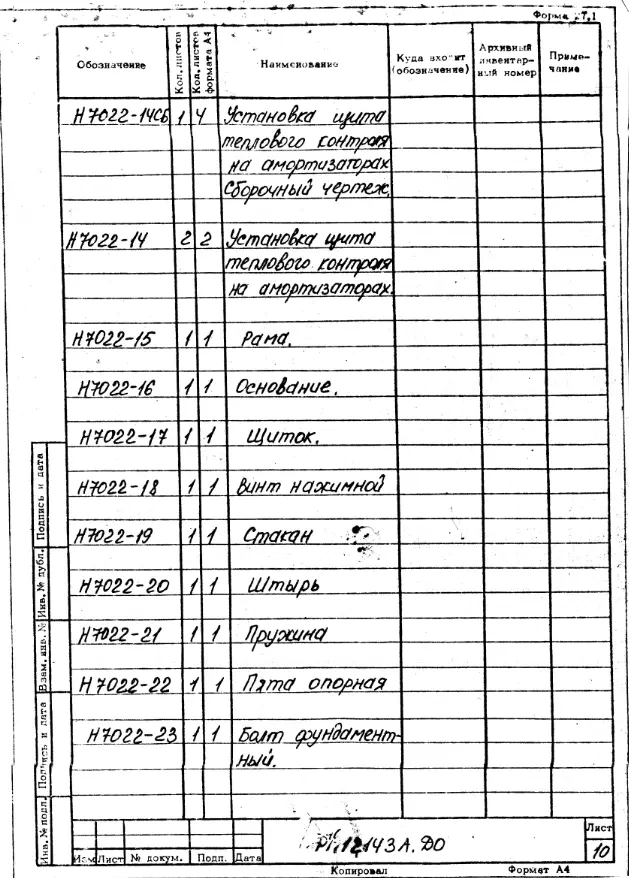 Форма 27.1
Обозначение
Кол. листов
Кол. листов формата А4
Наименование
Куда входит (обозначение)
Архивный инвентарный номер
Примечание
Н7022-14СБ 1 4 Установка щита
теплового контроля
на амортизаторах
Сборочный чертеж.
Н7022-14 2 2 Установка щита
теплового контроля
на амортизаторах.
Н7022-15 1 1 Рама.
Н7022-16 1 1 Основание.
Н7022-17 1 1 Щиток.
Н7022-18 1 1 Винт нажимной
Н7022-19 1 1 Стакан
Н7022-20 1 1 Штырь
Н7022-21 1 1 Пружина
Н7022-22 1 1 Пята опорная
Н7022-23 1 1 Болт фундамент-
ный.
Подпись и дата
Инв.№ дубл.
Взам. инв. №
Подпись и дата
Инв.№ подл.
Изм Лист № докум. Подп. Дата
12143А.ДО
Лист
10
Копировал Формат А4